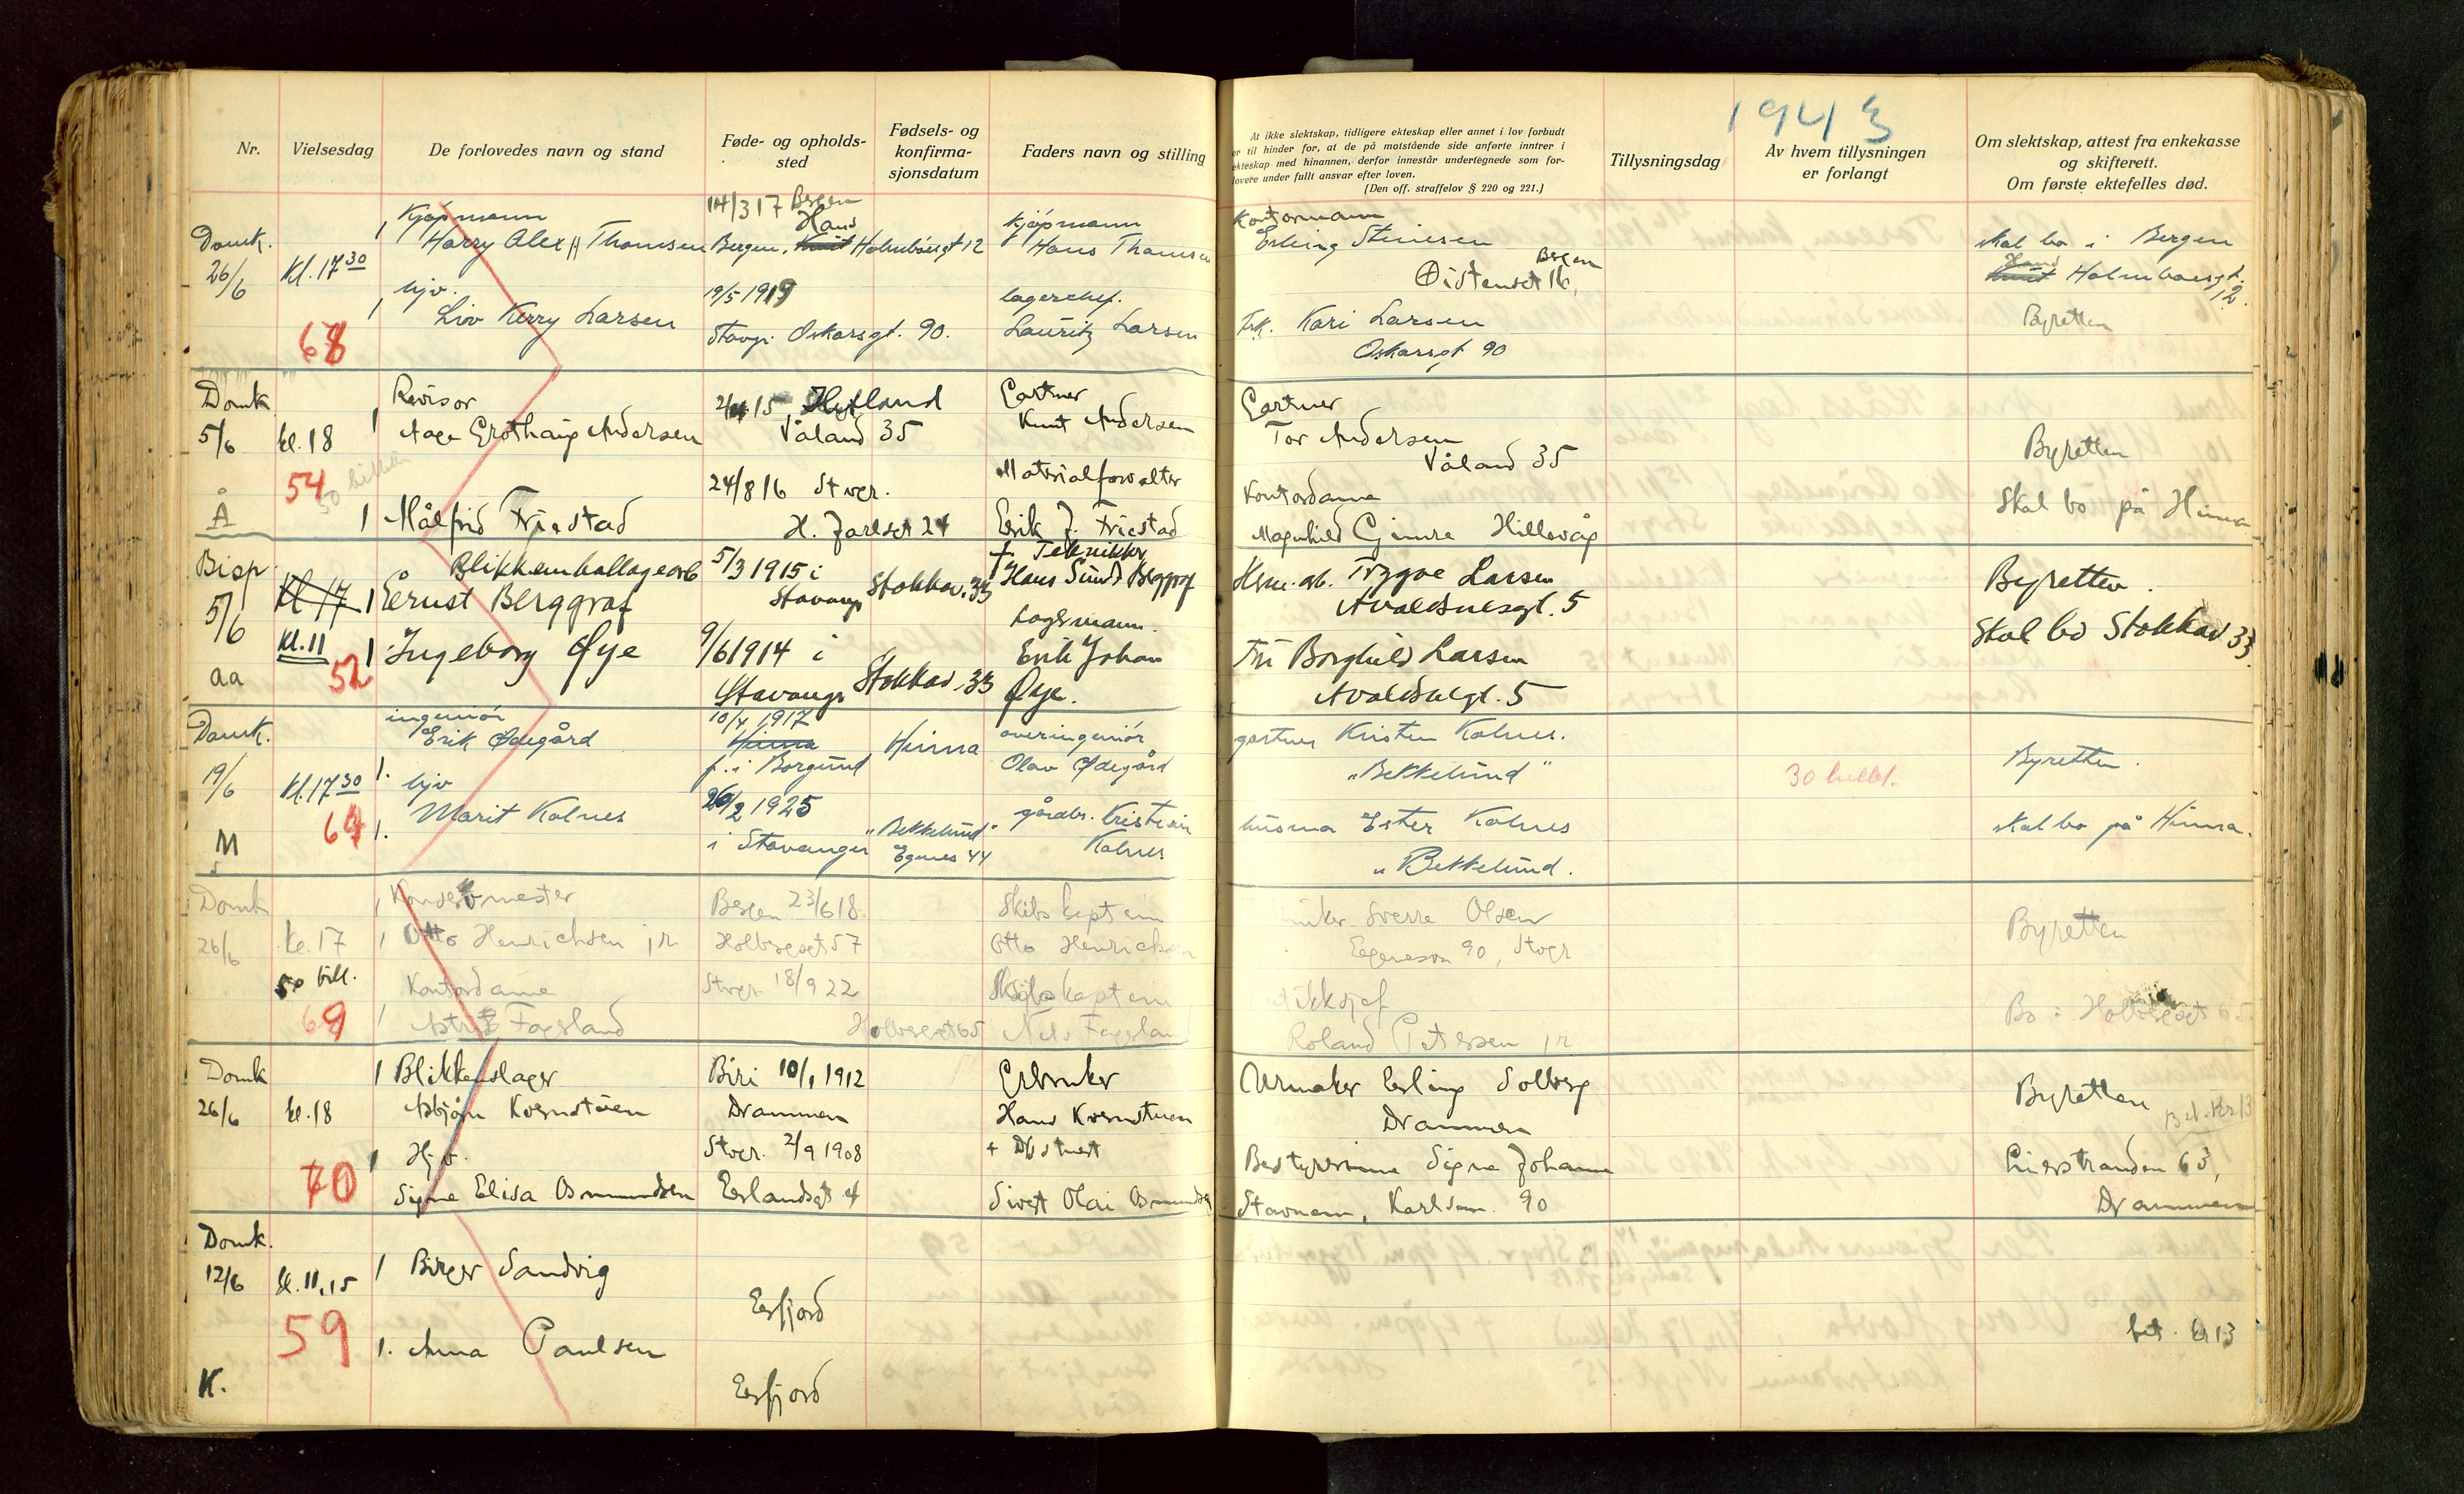 1943
Nr.
Vielsesdag
De forlovedes navn og stand
Føde- og opholds-
sted
Fødsels- og
konfirma-
sjonsdatum
Faders navn og stilling
At ikke slektskap, tidligere ekteskap eller annet i lov forbudt
er til hinder for, at de på motstående side anførte inntrer i
ekteskap med hinannen, derfor innestår undertegnede som for-
lovere under fullt ansvar efter loven.
(Den off. straffelov § 220 og 221.)
Tillysningsdag
Av hvem tillysningen
er forlangt
Om slektskap, attest fra enkekasse
og skifterett.
Om første ektefelles død.
Domk.
26/6
Kl. 17 30
68
1 Kjøpmann
Harry Alex H Thomsen
hjv.
1 Liv Kerry Larsen
14/3 17 Bergen
Hans
Bergen, Knut Holmboesgt 12
19/5 1919
Stavgr. Oskarsgt. 90.
kjøpmann
Hans Thomsen
lagerchef.
Lauritz Larsen
Kontormann
Erling Stenesen
Bergen
Øistensgt 16,
Frk. Kari Larsen
Oskarsgt 90
skal bo i Bergen
Hans
Knut Holmboesgt.
12.
Byretten
Domk
5/6
kl. 18
54
Å
Revisor
1 Aage Grøthaug Andersen
1 Målfrid Friestad
Hetland
Våland 35
24/8 16 Stvgr.
H. Jarlsgt 24
Gartner
Knut Andersen
Materialforvalter
Erik J. Friestad
Gartner
Tor Andersen
Våland 35
Kontordame
Magnhild Gimre Hillevåg
Byretten
Skal bo på Hinna
Bisp
5/6
Kl 17
Kl. 11
52
aa
Blikkemballagearb
1 Ernst Berggraf
1 Ingeborg Øye
5/3 1915 i
Stavanger
Stokkav. 33
9/6 1914 i
Stavanger
Stokkav. 33
f. Tekniker
Hans Sund Berggraf
Lagermann.
Erik Johan
Øye.
Herm. arb. Trygve Larsen
Avaldsnesgt. 5
Fru Borghild Larsen
Avaldsnesgt. 5
Byretten.
Skal bo Stokkav 33.
Domk.
19/6
Kl. 17 30
64
M
ingeniør
Erik Ødegård
1. hjv
1. Marit Kolnes
10/4 1917
Hinna
f. i Borgund
Hinna
20/2 1925
i Stavanger
"Bekkelund"
Egnes 44
overingeniør
Olav Ødegård
gårdbr. Kristen
Kolnes
gartner Kristen Kolnes.
"Bekkelund"
husmor Ester Kolnes
"Bekkelund.
30 billet.
Byretten.
skal bo på Hinna.
Domk
26/6
kl. 17
50 bill.
69
1 Konsertmester
1 Otto Henrichsen jr
Kontordame
1 Astrid Fagsland
Bergen 23/6 18
Holbergsgt 57
Stvgr 18/9 22
Holbergsgt 65
Skibskaptein
Otto Henrichsen
Skibskaptein
Nils Fagsland
Sverre Olsen
Egenesvn 90, Stvgr
Roland Petersen jr
Byretten
Bo i Holbergsgt 65
Domk
26/6
kl. 18
70
1 Blikkenslager
Asbjørn Kvernstuen
1 Hjv.
Signe Elisa Osmundsen
Biri 10/1 1912
Drammen
Stvgr. 2/9 1908
Erlandsgt 4
Gårdbruker
Hans Kvernstuen
Sivert Olai Osmundsen
Urmaker Erling Solberg
Drammen
Bestyrerinne Signe Johanne
Stavnem, Karlsem. 90
Byretten
Bet. Kr 13
Lierstranden 63,
Drammen
Domk.
12/6
kl. 11,15
59
K.
1 Birger Sandvig
1. Anna Paulsen
Erfjord
Erfjord
bet. kr 13